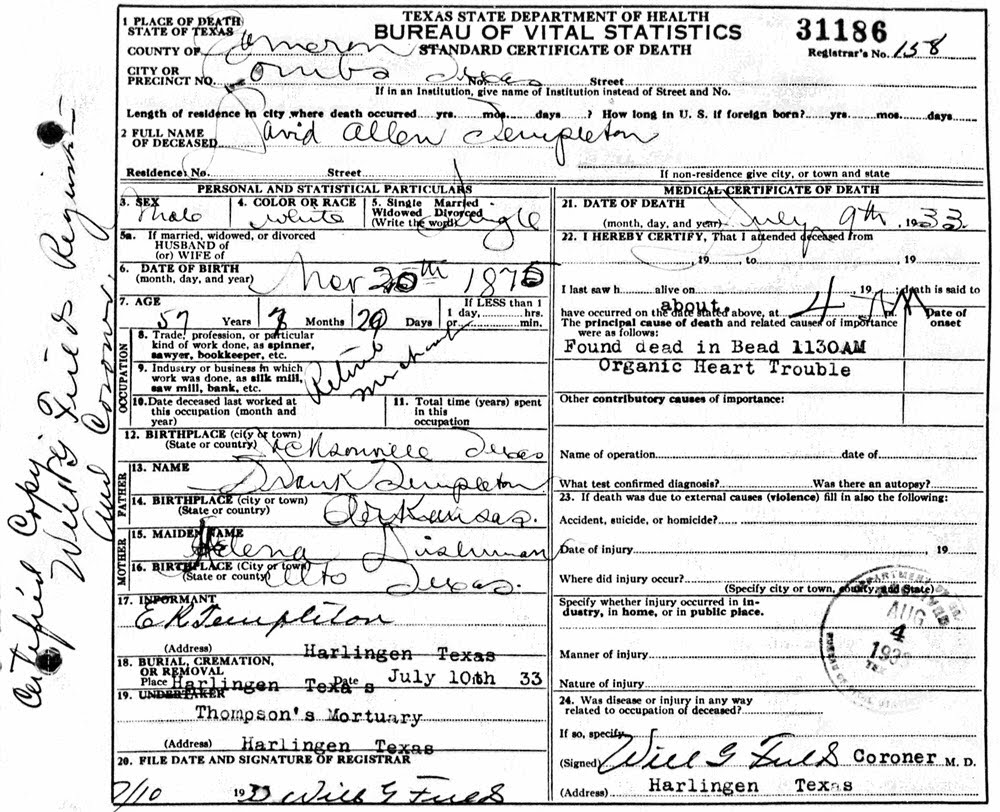 TEXAS STATE DEPARTMENT OF HEALTH
BUREAU OF VITAL STATISTICS
STANDARD CERTIFICATE OF DEATH
31186
Registrar's No. 158
1 PLACE OF DEATH
STATE OF TEXAS
COUNTY OF Cameron
CITY OR
PRECINCT NO. Combs Texas No. Street
If in an Institution, give name of Institution instead of Street and No.
Length of residence in city where death occurred yrs. mos. days? How long in U. S. if foreign born? yrs. mos. days
2 FULL NAME
OF DECEASED David Allen Templeton
Residence: No. Street
If non-residence give city, or town and state
PERSONAL AND STATISTICAL PARTICULARS
3. SEX
Male
4. COLOR OR RACE
White
5. Single Married
Widowed Divorced
(Write the word) Single
5a. If married, widowed, or divorced
HUSBAND of
(or) WIFE of
6. DATE OF BIRTH
(month, day, and year) Nov 20th 1875
7. AGE
57 Years 7 Months 20 Days
If LESS than 1
1 day, hrs.
or min.
OCCUPATION
8. Trade, profession, or particular
kind of work done, as spinner,
sawyer, bookkeeper, etc.
9. Industry or business in which
work was done, as silk mill,
saw mill, bank, etc.
Retired
10. Date deceased last worked at
this occupation (month and
year)
11. Total time (years) spent
in this
occupation
12. BIRTHPLACE (city or town)
(State or country) Jacksonville Texas
FATHER
13. NAME
Frank Templeton
14. BIRTHPLACE (city or town)
(State or country) Arkansas.
MOTHER
15. MAIDEN NAME
Helena Dishman
16. BIRTHPLACE (City or town)
(State or county) Alto Texas.
17. INFORMANT
E R Templeton
(Address) Harlingen Texas
18. BURIAL, CREMATION,
OR REMOVAL
Place Harlingen Texas Date July 10th 33
19. UNDERTAKER
Thompson's Mortuary
(Address) Harlingen Texas
20. FILE DATE AND SIGNATURE OF REGISTRAR
7/10 1933 Will G Fields
MEDICAL CERTIFICATE OF DEATH
21. DATE OF DEATH
(month, day, and year) July 9th, 1933.
22. I HEREBY CERTIFY, That I attended deceased from
, 19 , to , 19
I last saw h alive on , 19 ; death is said to
about
have occurred on the date stated above, at 4 AM m.
The principal cause of death and related causes of importance
were as follows:
Date of
onset
Found dead in Bead 1130AM
Organic Heart Trouble
Other contributory causes of importance:
Name of operation date of
What test confirmed diagnosis? Was there an autopsy?
23. If death was due to external causes (violence) fill in also the following:
Accident, suicide, or homicide?
Date of injury 19
Where did injury occur?
(Specify city or town, county, and State)
Specify whether injury occurred in in-
dustry, in home, or in public place.
Manner of injury
Nature of injury
24. Was disease or injury in any way
related to occupation of deceased?
If so, specify
(Signed) Will G Fields Coroner M. D.
(Address) Harlingen Texas
AUG
4
Certified Copy
Will G Fields Register
and Coroner